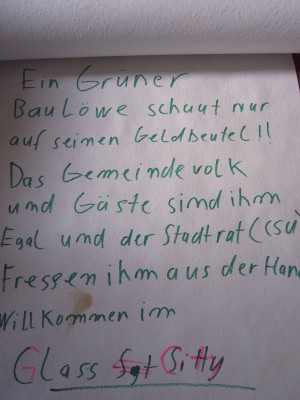 Ein Grüner
BauLöwe schaut nur
auf seinen Geldbeutel!!
Das Gemeindevolk
und Gäste sind ihm
Egal und der Stadtrat (CSU)
Fressen ihm aus der Hand
Willkommen im
Glass Sitty